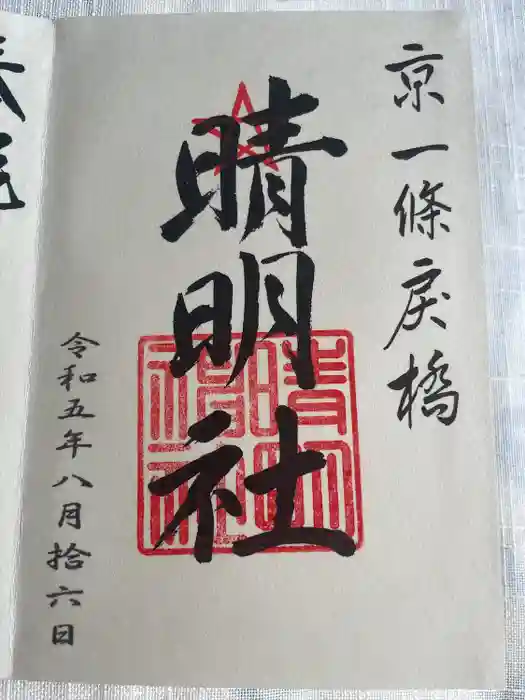 京一條戻橋
晴明社
晴明神社
令和五年八月拾六日